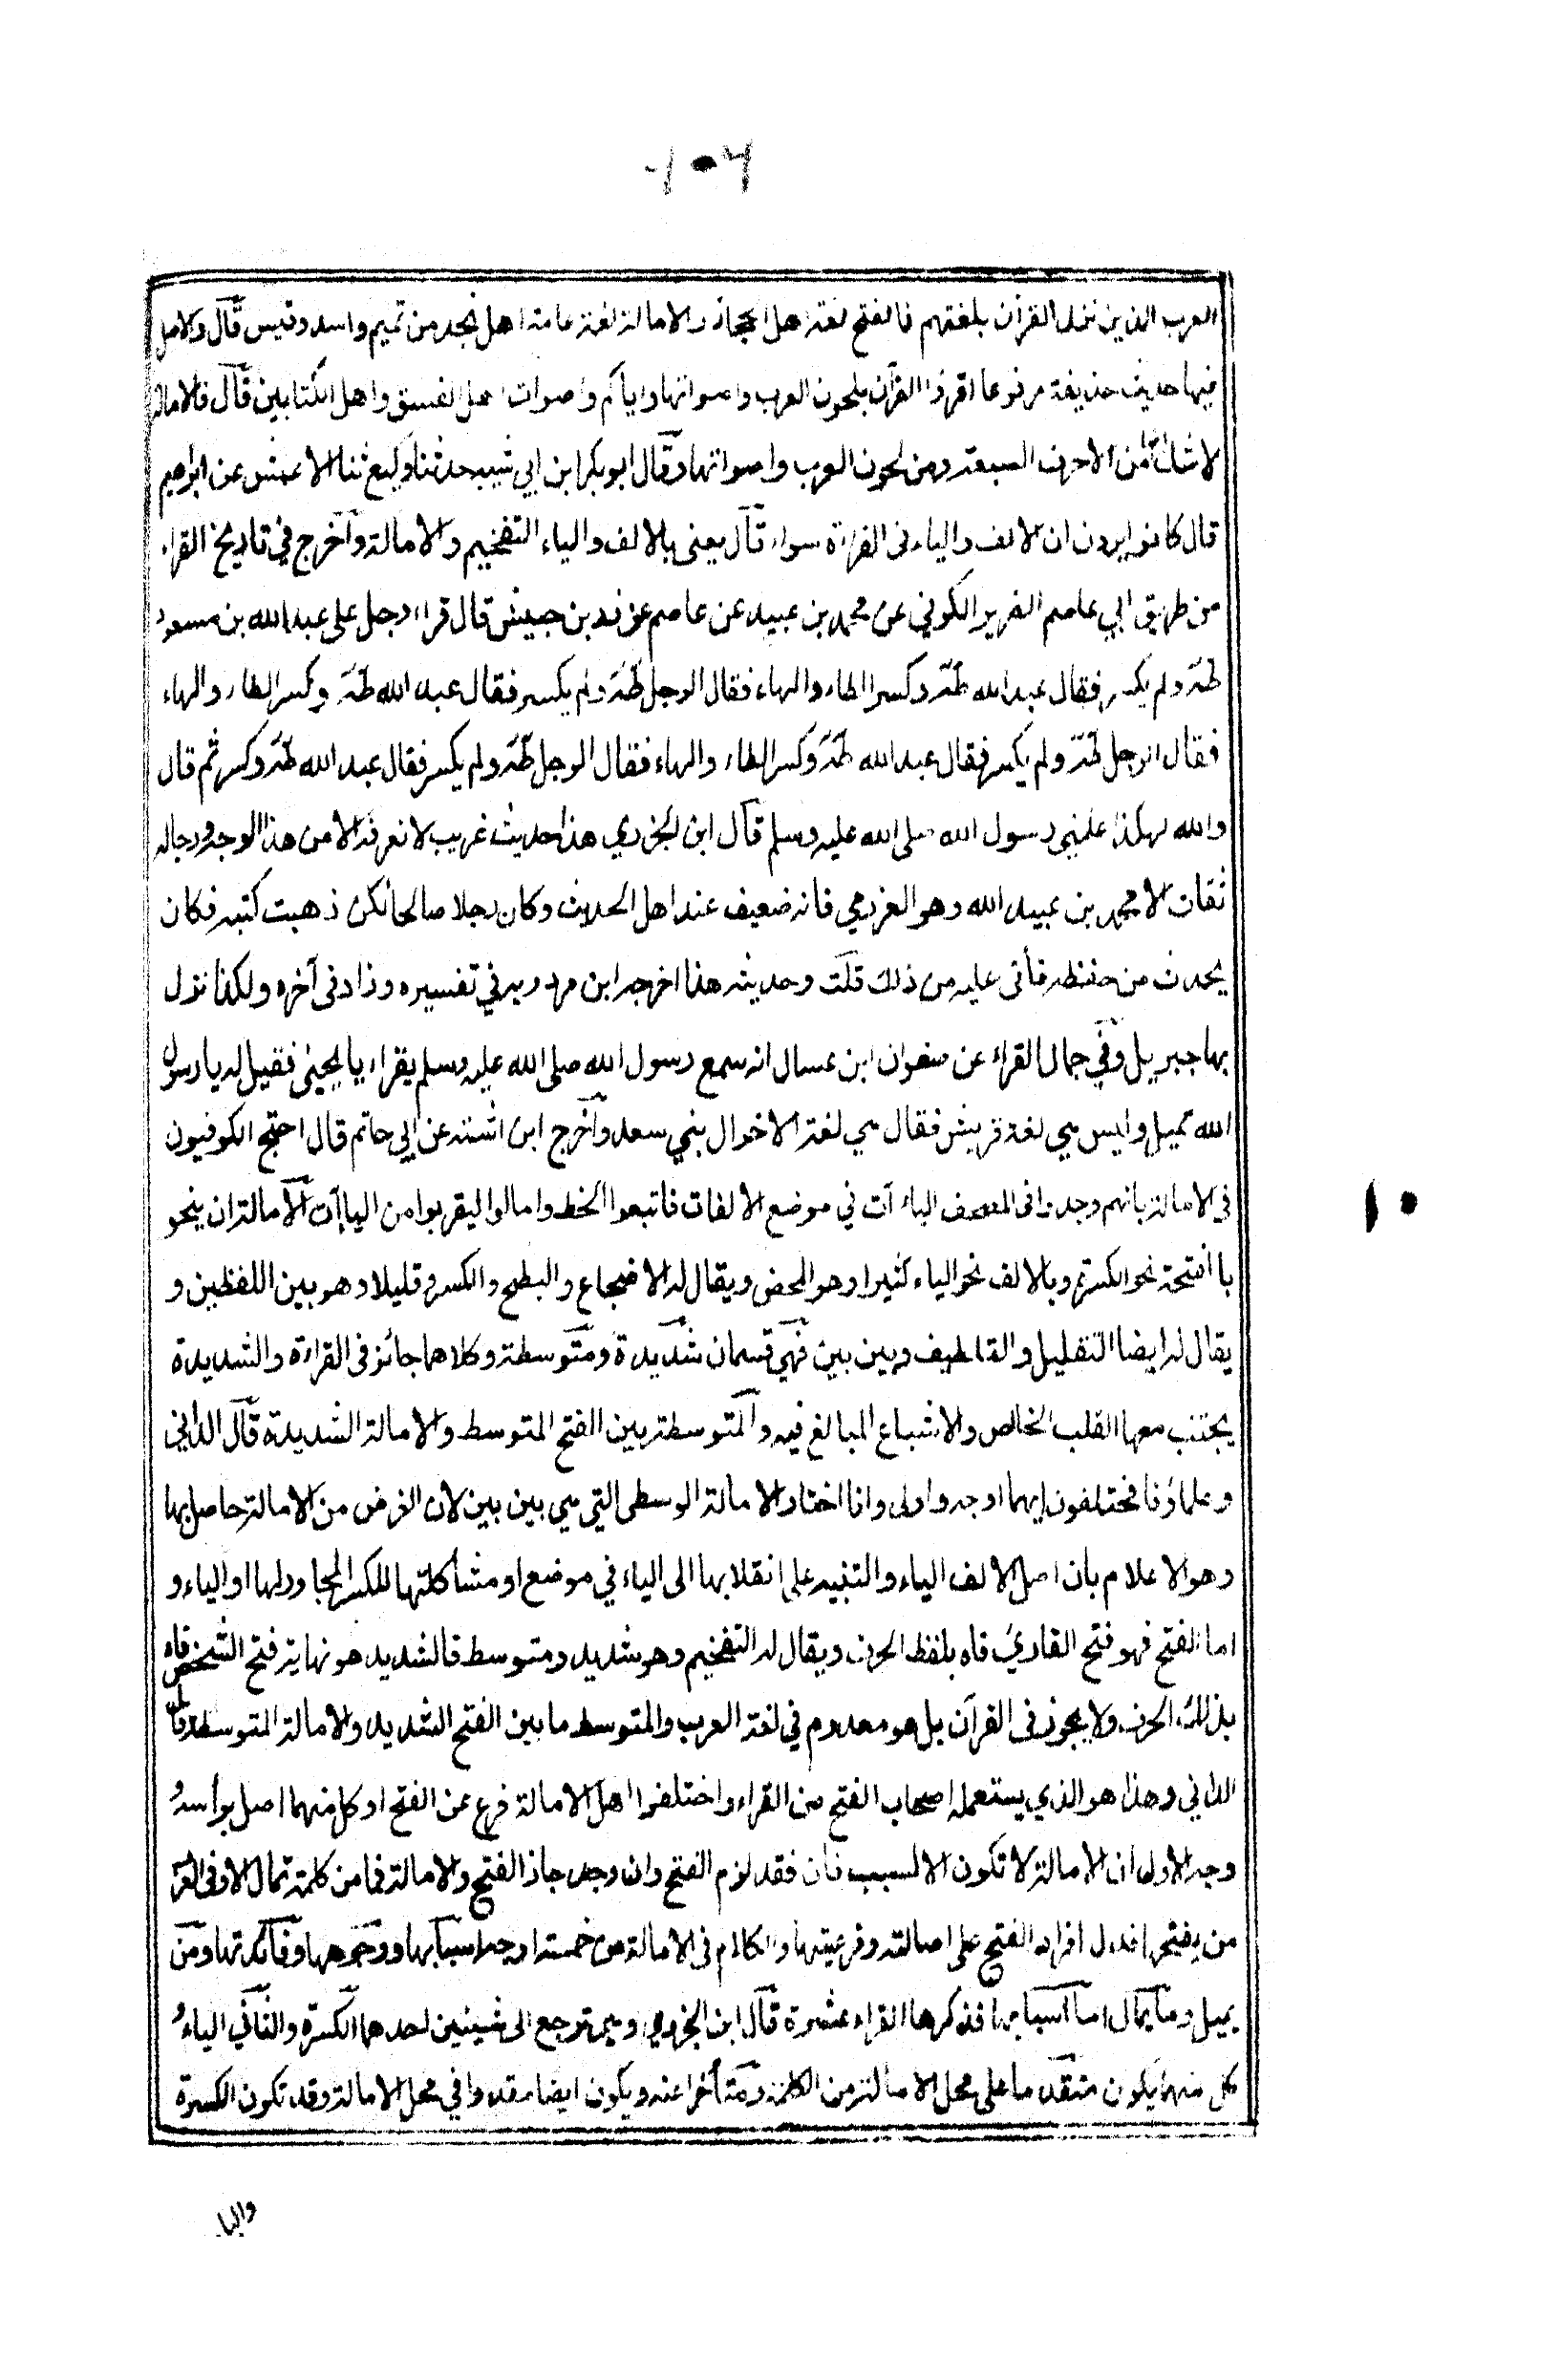 ١٠٦
العرب الذين نزل القرآن بلغتهم فالفتح لغة اهل الحجاز والامالة لغة عامة اهل نجد من تميم واسد وقيس قال والاصل
فيها حديث حذيفة مرفوعا اقرؤا القرآن بلحون العرب واصواتها واياكم واصوات اهل الفسق واهل الكتابين قال فالامالة
لا شك من الاحرف السبعة ومن لحون العرب واصواتها وقال ابو بكر ابن ابي شيبه حدثنا وكيع ثنا الاعمش عن ابراهيم
قال كانوا يرون ان الالف والياء فى القراءة سواء قال يعنى بالالف والياء التفخيم والامالة وآخرج في تاريخ القراء
من طريق ابي عاصم الضرير الكوفي عن محمد بن عبيد عن عاصم عن زر بن حبيش قال قراء رجل على عبد الله بن مسعود
طه ولم يكسر فقال عبد الله طه وكسر الطاء والهاء فقال الرجل طه ولم يكسر فقال عبد الله طه وكسر الطاء والهاء
فقال الرجل طه ولم يكسر فقال عبد الله طه وكسر الطاء والهاء فقال الرجل طه ولم يكسر فقال عبد الله طه وكسر ثم قال
والله لهكذا علمني رسول الله صلى الله عليه وسلم قال ابن الجزري هذا حديث غريب لا نعرفه الا من هذا الوجه ورجاله
ثقات الا محمد بن عبيد الله وهو العزرمي فانه ضعيف عند اهل الحديث وكان رجلا صالحا لكن ذهبت كتبه فكان
يحدث من حفظه فأتى عليه من ذلك قلت وحديثه هذا اخرجه ابن مردويه في تفسيره وزاد فى آخره ولكذا نزل
بها جبريل وفي جمال القراء عن صفوان ابن عسال انه سمع رسول الله صلى الله عليه وسلم يقراء يا يحيى فقيل له يا رسول
الله تميل وليس هي لغة قريش فقال هي لغة الاخوال بني سعد وآخرج ابن اشته عن ابي حاتم قال احتج الكوفيون
فى الامالة بانهم وجدوا فى المصحف الياءآت في موضع الالفات فاتبعوا الخط وامالوا ليقربوا من الياآت الآمالة ان ينحو
بالفتحة نحو الكسرة وبالالف نحو الياء كثيرا وهو المحض ويقال له الاضجاع والبطح والكسر وقليلا وهو بين اللفظين و
يقال له ايضا التقليل والتلطيف وبين بين فهي قسمان شديدة ومتوسطة وكلاهما جائز فى القراءة والشديدة
يجتنب معها القلب الخالص والاشباع المبالغ فيه والمتوسطة بين الفتح المتوسط والامالة الشديدة قال الداني
وعلماؤنا مختلفون ايهما اوجه واولى وانا اختار الامالة الوسطى التي هي بين بين لان الغرض من الامالة حاصل بها
وهو الاعلام بان اصل الالف الياء والتنبيه على انقلابها الى الياء في موضع او مشاكلتها للكسر المجاور لها او الياء و
اما الفتح فهو فتح القاري فاه بلفظ الحرف ويقال له التفخيم وهو شديد ومتوسط فالشديد هو نهاية فتح الشخص فاه
بذلك الحرف ولا يجوز فى القرآن بل هو معدوم في لغة العرب والمتوسط ما بين الفتح الشديد والامالة المتوسطة قال
الداني وهذا هو الذي يستعمله اصحاب الفتح من القراء واختلفوا اهل الامالة فرع عن الفتح او كل منهما اصل برأسه
وجه الاول ان الامالة لا تكون الا لسبب فان فقد لزم الفتح وان وجد جاز الفتح والامالة فما من كلمة تمال الا وفى العرب
من يفتحها فدل افراد الفتح على اصالته وفرعيتها والكلام فى الامالة من خمسة اوجه اسبابها ووجوهها وفائدتها ومن
يميل وما يمال اما اسبابها فذكرها القراء عشرة قال ابن الجزري وهي ترجع الى شيئين احدهما الكسرة والثاني الياء
كل منهما يكون متقدما على محل الامالة من الكلمة ومتأخرا عنه ويكون ايضا مقدرا في محل الامالة وقد تكون الكسرة
والياء
١٠